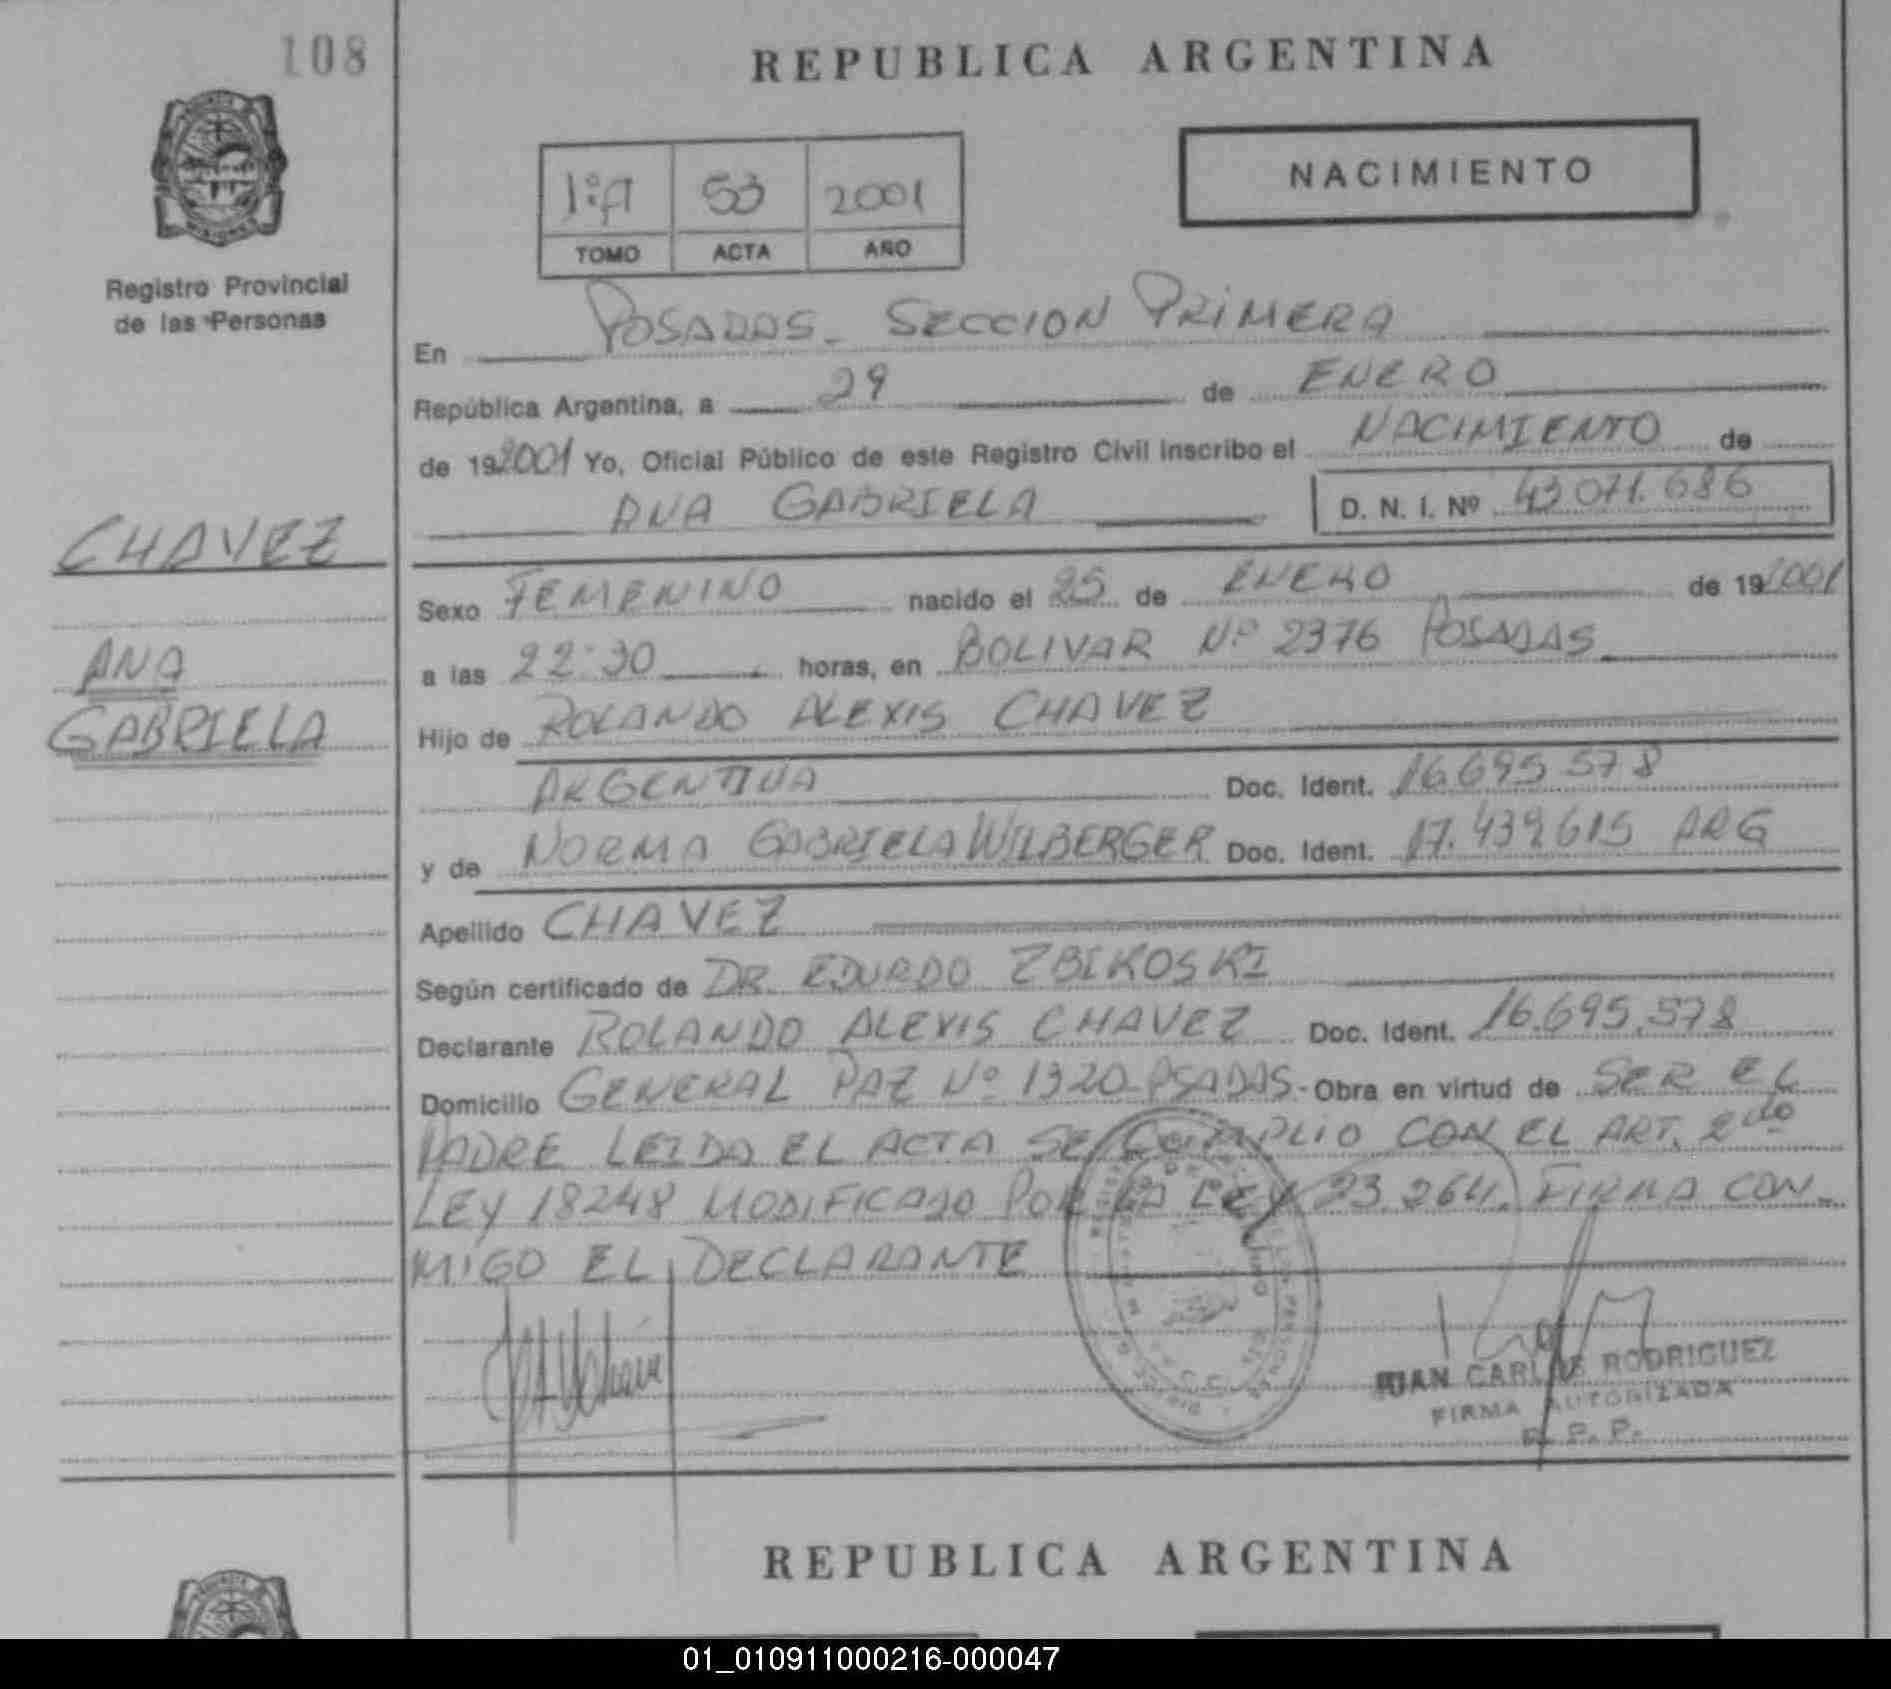 108
REPUBLICA ARGENTINA
NACIMIENTO
1:A 53 2001
TOMO ACTA AÑO
Registro Provincial
de las Personas
En POSADAS - SECCION PRIMERA
República Argentina, a 29 de ENERO
de 192001 Yo, Oficial Público de este Registro Civil inscribo el NACIMIENTO de
ANA GABRIELA D. N. I. Nº 43.071.686
CHAVEZ
ANA
GABRIELA
Sexo FEMENINO nacido el 25 de ENERO de 192001
a las 22:30 horas, en BOLIVAR Nº 2376 POSADAS
Hijo de ROLANDO ALEXIS CHAVEZ
ARGENTINA Doc. Ident. 16.695.578
y de NORMA GABRIELA WILBERGER Doc. Ident. 17.439.615 ARG
Apellido CHAVEZ
Según certificado de DR. EDURDO ZBIKOSKI
Declarante ROLANDO ALEXIS CHAVEZ Doc. Ident. 16.695.578
Domicilio GENERAL PAZ Nº 1320 - PSADAS - Obra en virtud de SER EL
PADRE LEIDA EL ACTA SE CUMPLIO CON EL ART. 2do
LEY 18248 MODIFICADO POR LA LEY 23.264. FIRMA CON-
MIGO EL DECLARANTE
JUAN CARLOS RODRIGUEZ
FIRMA AUTORIZADA
R. P. P.
REPUBLICA ARGENTINA
01_010911000216-000047